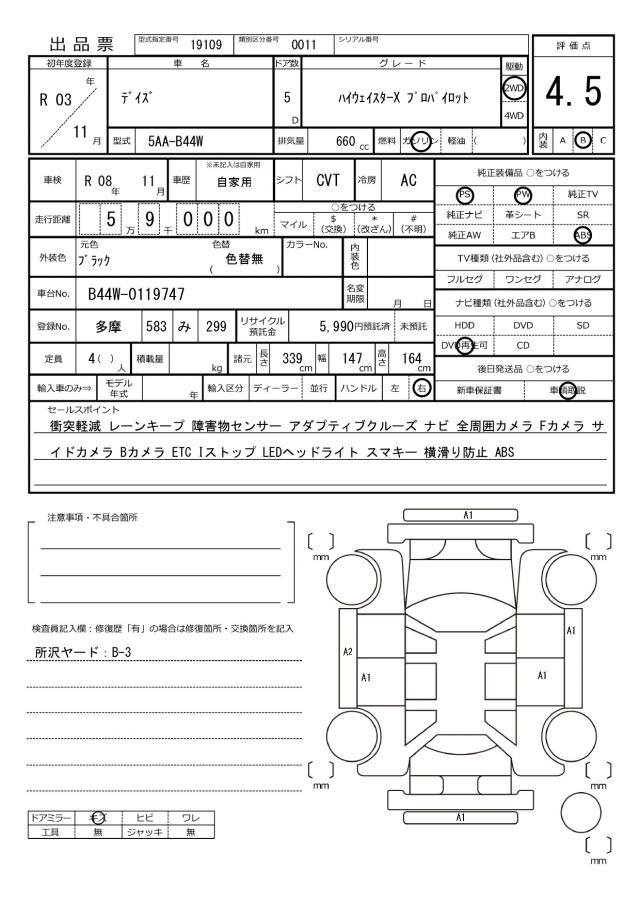 出品票 型式指定番号 19109 類別区分番号 0011 シリアル番号
評価点
初年度登録 車名 ドア数 グレード 駆動
R 03 年 11 月
デイズ 5 D ハイウェイスターX プロパイロット 2WD 4WD
4.5
型式 5AA-B44W 排気量 660 cc 燃料 ガソリン 軽油 ( )
内装 A B C
車検 R 08 年 11 月 車歴 ※未記入は自家用 自家用 シフト CVT 冷房 AC
純正装備品 ○をつける
PS PW 純正TV
走行距離 5 万 9 千 0 0 0 km
○をつける
マイル $ (交換) * (改ざん) # (不明)
純正ナビ 革シート SR
純正AW エアB ABS
外装色 元色 ブラック 色替 ( 色替無 ) カラーNo. 内装色
TV種類 (社外品含む) ○をつける
フルセグ ワンセグ アナログ
車台No. B44W-0119747 名変期限 月 日
ナビ種類 (社外品含む) ○をつける
登録No. 多摩 583 み 299 リサイクル預託金 5,990円預託済 未預託
HDD DVD SD
DVD再生可 CD
定員 4 ( ) 人 積載量 kg 諸元 長さ 339 cm 幅 147 cm 高さ 164 cm
後日発送品 ○をつける
輸入車のみ⇒ モデル年式 年 輸入区分 ディーラー 並行 ハンドル 左 右
新車保証書 車輌取説
セールスポイント
衝突軽減 レーンキープ 障害物センサー アダプティブクルーズ ナビ 全周囲カメラ Fカメラ サ
イドカメラ Bカメラ ETC Iストップ LEDヘッドライト スマキー 横滑り防止 ABS
注意事項・不具合箇所
検査員記入欄：修復歴「有」の場合は修復箇所・交換箇所を記入
所沢ヤード：B-3
A1
mm
mm
A1
A2
A1
A1
mm
mm
A1
mm
ドアミラー キズ ヒビ ワレ
工具 無 ジャッキ 無